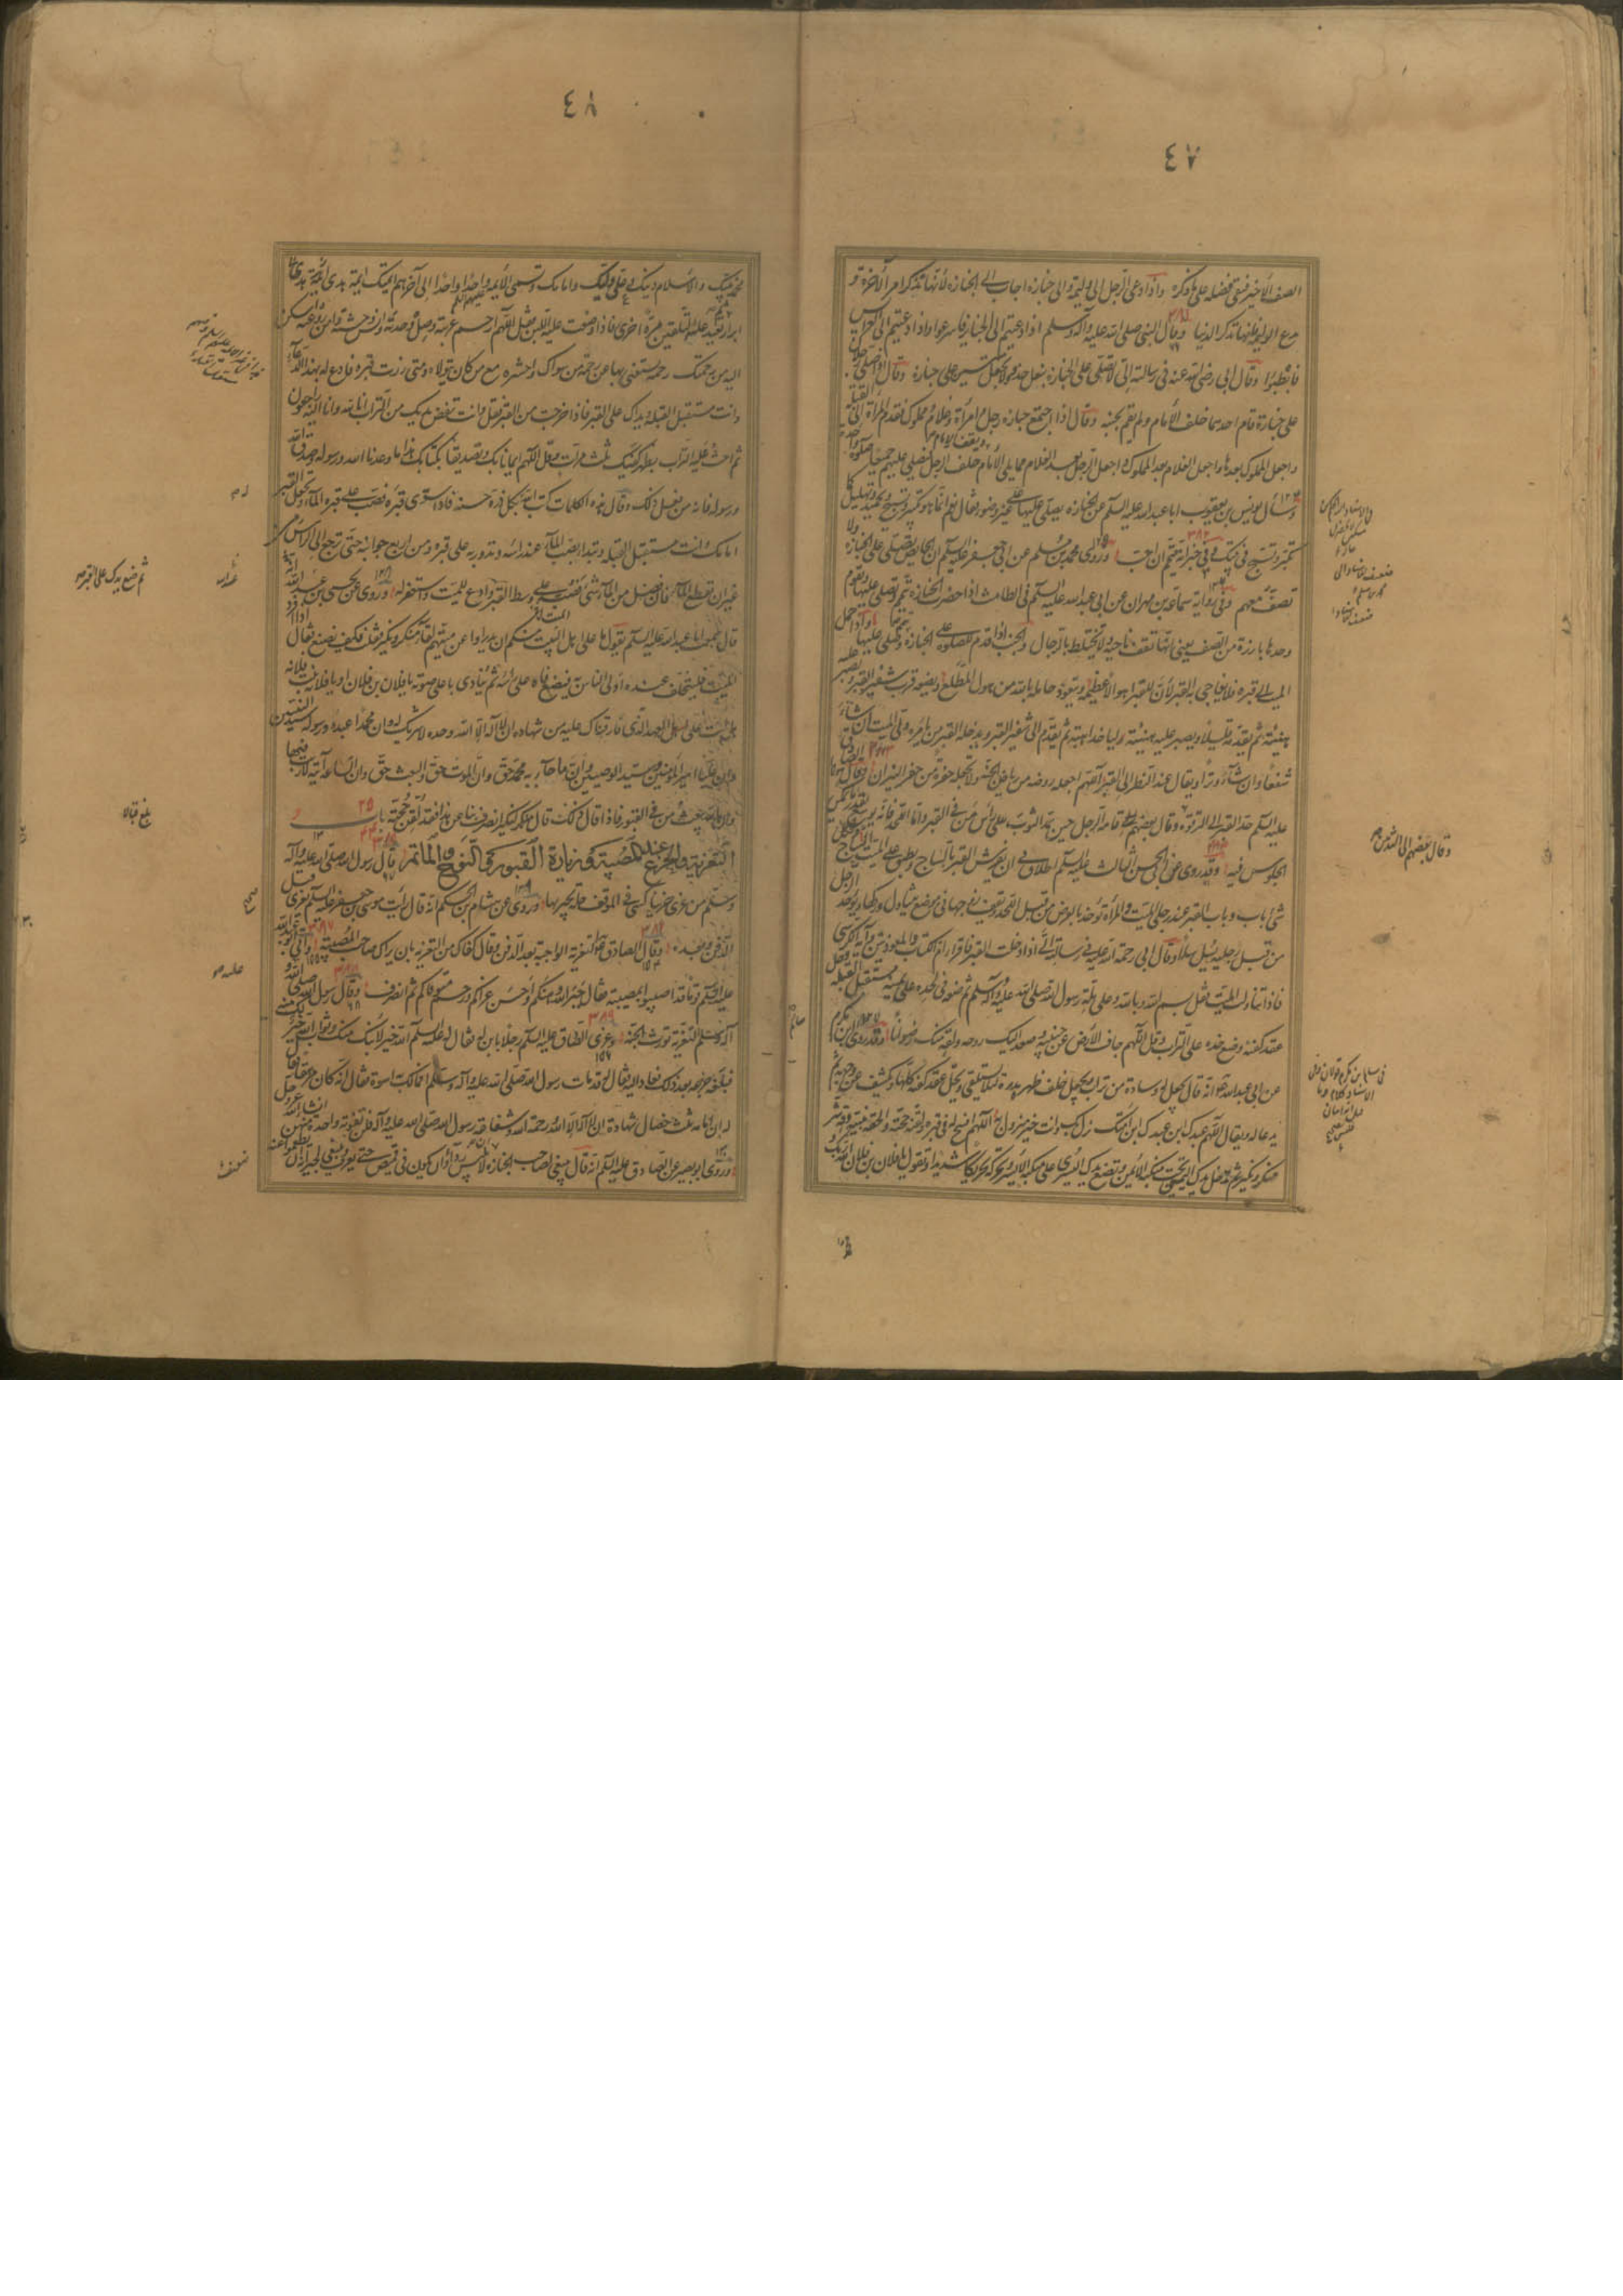 ٤٧
الصف الأخير فبقي فضله على ما ذكره وإذا دعي الرجل إلى وليمة وإلى جنازة أجاب إلى الجنازة لأنها تذكر أمر الآخرة و
يدع الوليمة لأنها تذكر الدنيا وقال النبي صلى الله عليه وآله وسلم إذا دعيتم إلى الجنايز فاسرعوا وإذا دعيتم إلى العرايس
فابطئوا وقال أبي رضي الله عنه في رسالته إلي لا تصلي على الجنازة بنعل حذو ولا تجعل ميتين على جنازة وقال إذا صلى رجلان
على جنازة قام أحدهما خلف الإمام ولم يقم بجنبه وقال إذا اجتمع جنازة رجل وامرأة وغلام ومملوك فقدم المرأة إلى القبلة
واجعل المملوك بعدها واجعل الغلام بعد المملوك واجعل الرجل بعد الغلام مما يلي الإمام ويقف الإمام خلف الرجل فيصلي عليهم جميعا صلوة واحدة
وسأل يونس بن يعقوب أبا عبد الله عليه السلم عن الجنازة يصلى عليها على غير وضوء فقال نعم إنما هو تكبير وتسبيح وتحميد وتهليل كما
تكبر وتسبح في بيتك وفي خبر آخر أنه يتيمم إن أحب وروى محمد بن مسلم عن أبي جعفر عليه السلم أن الحايض تصلي على الجنازة ولا
تصف معهم وفي رواية سماعة بن مهران عن أبي عبد الله عليه السلم في الطامث إذا حضرت الجنازة تتيمم وتصلي عليها وتقوم
وحدها بارزة من الصف يعني أنها تقف ناحية ولا تختلط بالرجال والجنب إذا قدم للصلوة على الجنازة تيمم وصلى عليها وإذا حمل
الميت إلى قبره فلا يفاجى به القبر لأن للقبر أهوالا عظيمة ويتعوذ حامله بالله من هول المطلع ويضعه قرب شفير القبر ويصبر عليه
هنيئة ثم يقدمه قليلا ويصبر عليه هنيئة وليأخذ أهبته ثم يقدم إلى شفير القبر ويدخله القبر من يأمره ولي الميت إن شاء
شفعا وإن شاء وترا ويقال عند النظر إلى القبر اللهم اجعله روضة من رياض الجنة ولا تجعله حفرة من حفر النيران وقال الصادق
عليه السلم حد القبر إلى الترقوة وقال بعضهم قامة الرجل حين يمد الثوب على رأس من في القبر وأما اللحد فإنه يوسع بقدر ما يمكن
الجلوس فيه وقد روي عن أبي الحسن الثالث عليه السلم إطلاق في أن يفرش القبر بالساج ويطبق على الميت الساج
شيء باب وباب القبر عند رجلي الميت والمرأة تؤخذ بالعرض من قبل اللحد ويقف زوجها في موضع يتناول وركها ويؤخذ الرجل
من قبل رجليه يسل سلا وقال أبي رحمة الله عليه في رسالته إلي إذا دخلت القبر فاقرأ أم الكتاب والمعوذتين وآية الكرسي
فإذا تناولت الميت فقل بسم الله وبالله وعلى ملة رسول الله صلى الله عليه وآله وسلم ثم ضعه في لحده على يمينه مستقبل القبلة وحل
عقد كفنه وضع خده على التراب وقل اللهم جاف الأرض عن جنبيه وصعد إليك روحه ولقه منك رضوانا وقد روى سالم بن مكرم
عن أبي عبد الله أنه قال يجعل له وسادة من تراب ويجعل خلف ظهره مدرة لئلا يستلقي ويحل عقد كفنه كلها ويكشف عن وجهه ثم
يدعا له ويقال اللهم عبدك ابن عبدك ابن أمتك نزل بك وأنت خير منزول به اللهم افسح له في قبره ولقنه حجته وألحقه بنبيه وقه شر
منكر ونكير ثم تدخل يدك اليمنى تحت منكبه الأيمن وتضع يدك اليسرى على منكبه الأيسر وتحركه تحريكا شديدا وتقول يا فلان بن فلان الله ربك
وقال بعضهم إلى الثديين
٤٨
محمد نبيك والإسلام دينك وعلي وليك وإمامك وتسمي الأئمة واحدا واحدا إلى آخرهم أئمتك أئمة هدى
أبرار ثم تعيد عليه التلقين مرة أخرى فإذا وضعت عليه اللبن فقل اللهم ارحم غربته وصل وحدته وآنس وحشته وآمن روعته وأسكن
إليه من رحمتك رحمة يستغني بها عن رحمة من سواك واحشره مع من كان يتولاه ومتى زرت قبره فادع له بهذا الدعاء
وأنت مستقبل القبلة ويداك على القبر فإذا خرجت من القبر فقل وأنت تنفض يديك من التراب إنا لله وإنا إليه راجعون
ثم احث التراب عليه بظهر كفيك ثلث مرات وقل اللهم إيمانا بك وتصديقا بكتابك هذا ما وعدنا الله ورسوله وصدق الله
ورسوله فإنه من فعل ذلك وقال هذه الكلمات كتب الله له بكل ذرة حسنة فإذا سوي قبره فصب على قبره الماء وتجعل القبر
أمامك وأنت مستقبل القبلة وتبدأ بصب الماء عند رأسه وتدور به على قبره من أربع جوانبه حتى ترجع إلى الرأس من
غير أن تقطع الماء فإن فضل من الماء شيء فصبه على وسط القبر وادع للميت واستغفر له وروي عن يحيى بن عبد الله أنه
قال سمعت أبا عبد الله عليه السلم يقول ما على أهل الميت منكم أن يدرأوا عن ميتهم لقاء منكر ونكير فقلت وكيف نصنع فقال إذا أفرد
الميت فليتخلف عنده أولى الناس به فيضع فاه على رأسه ثم ينادي بأعلى صوته يا فلان بن فلان أو يا فلانة بنت فلانة
هل أنت على العهد الذي فارقناك عليه من شهادة أن لا إله إلا الله وحده لا شريك له وأن محمدا عبده ورسوله سيد النبيين
وأن عليا أمير المؤمنين وسيد الوصيين وأن ما جاء به محمد حق وأن الموت حق والبعث حق وأن الساعة آتية لا ريب فيها
وأن الله يبعث من في القبور فإذا قال ذلك قال منكر لنكير انصرف بنا عن هذا فقد لقن حجته باب ٢٥
التعزية والجزع عند المصيبة وزيارة القبور والنوح والمأتم قال رسول الله صلى الله عليه وآله
وسلم من عزى حزينا كسي في الموقف حلة يحبر بها وروي عن هشام بن الحكم أنه قال رأيت موسى بن جعفر عليه السلم يعزي قبل
الدفن وبعده وقال الصادق التعزية الواجبة بعد الدفن وقال كفاك من التعزية بأن يراك صاحب المصيبة وأتى أبو عبد الله
عليه السلم قوما قد أصيبوا بمصيبة فقال جبر الله وهنكم وأحسن عزاكم ورحم متوفاكم ثم انصرف وقال رسول الله صلى الله عليه و
آله وسلم التعزية تورث الجنة وعزى الصادق عليه السلم رجلا بابن له فقال له عليه السلم الله خير لابنك منك وثواب الله خير لك منه
فبلغه جزعه بعد ذلك فعاد إليه فقال له قد مات رسول الله صلى الله عليه وآله وسلم أفما لك به أسوة فقال إنه كان مرهقا فقال
له إن أمامه ثلث خصال شهادة أن لا إله إلا الله ورحمة الله وشفاعة رسول الله صلى الله عليه وآله فلن تفوته واحدة منهن إن شاء الله
وروى أبو بصير عن الصادق عليه السلم أنه قال ينبغي لصاحب الجنازة أن لا يلبس رداء وأن يكون في قميص حتى يعرف وينبغي لجيرانه أن يطعموا عنه
ثم ضع يدك على القبر
بلغ قبالا